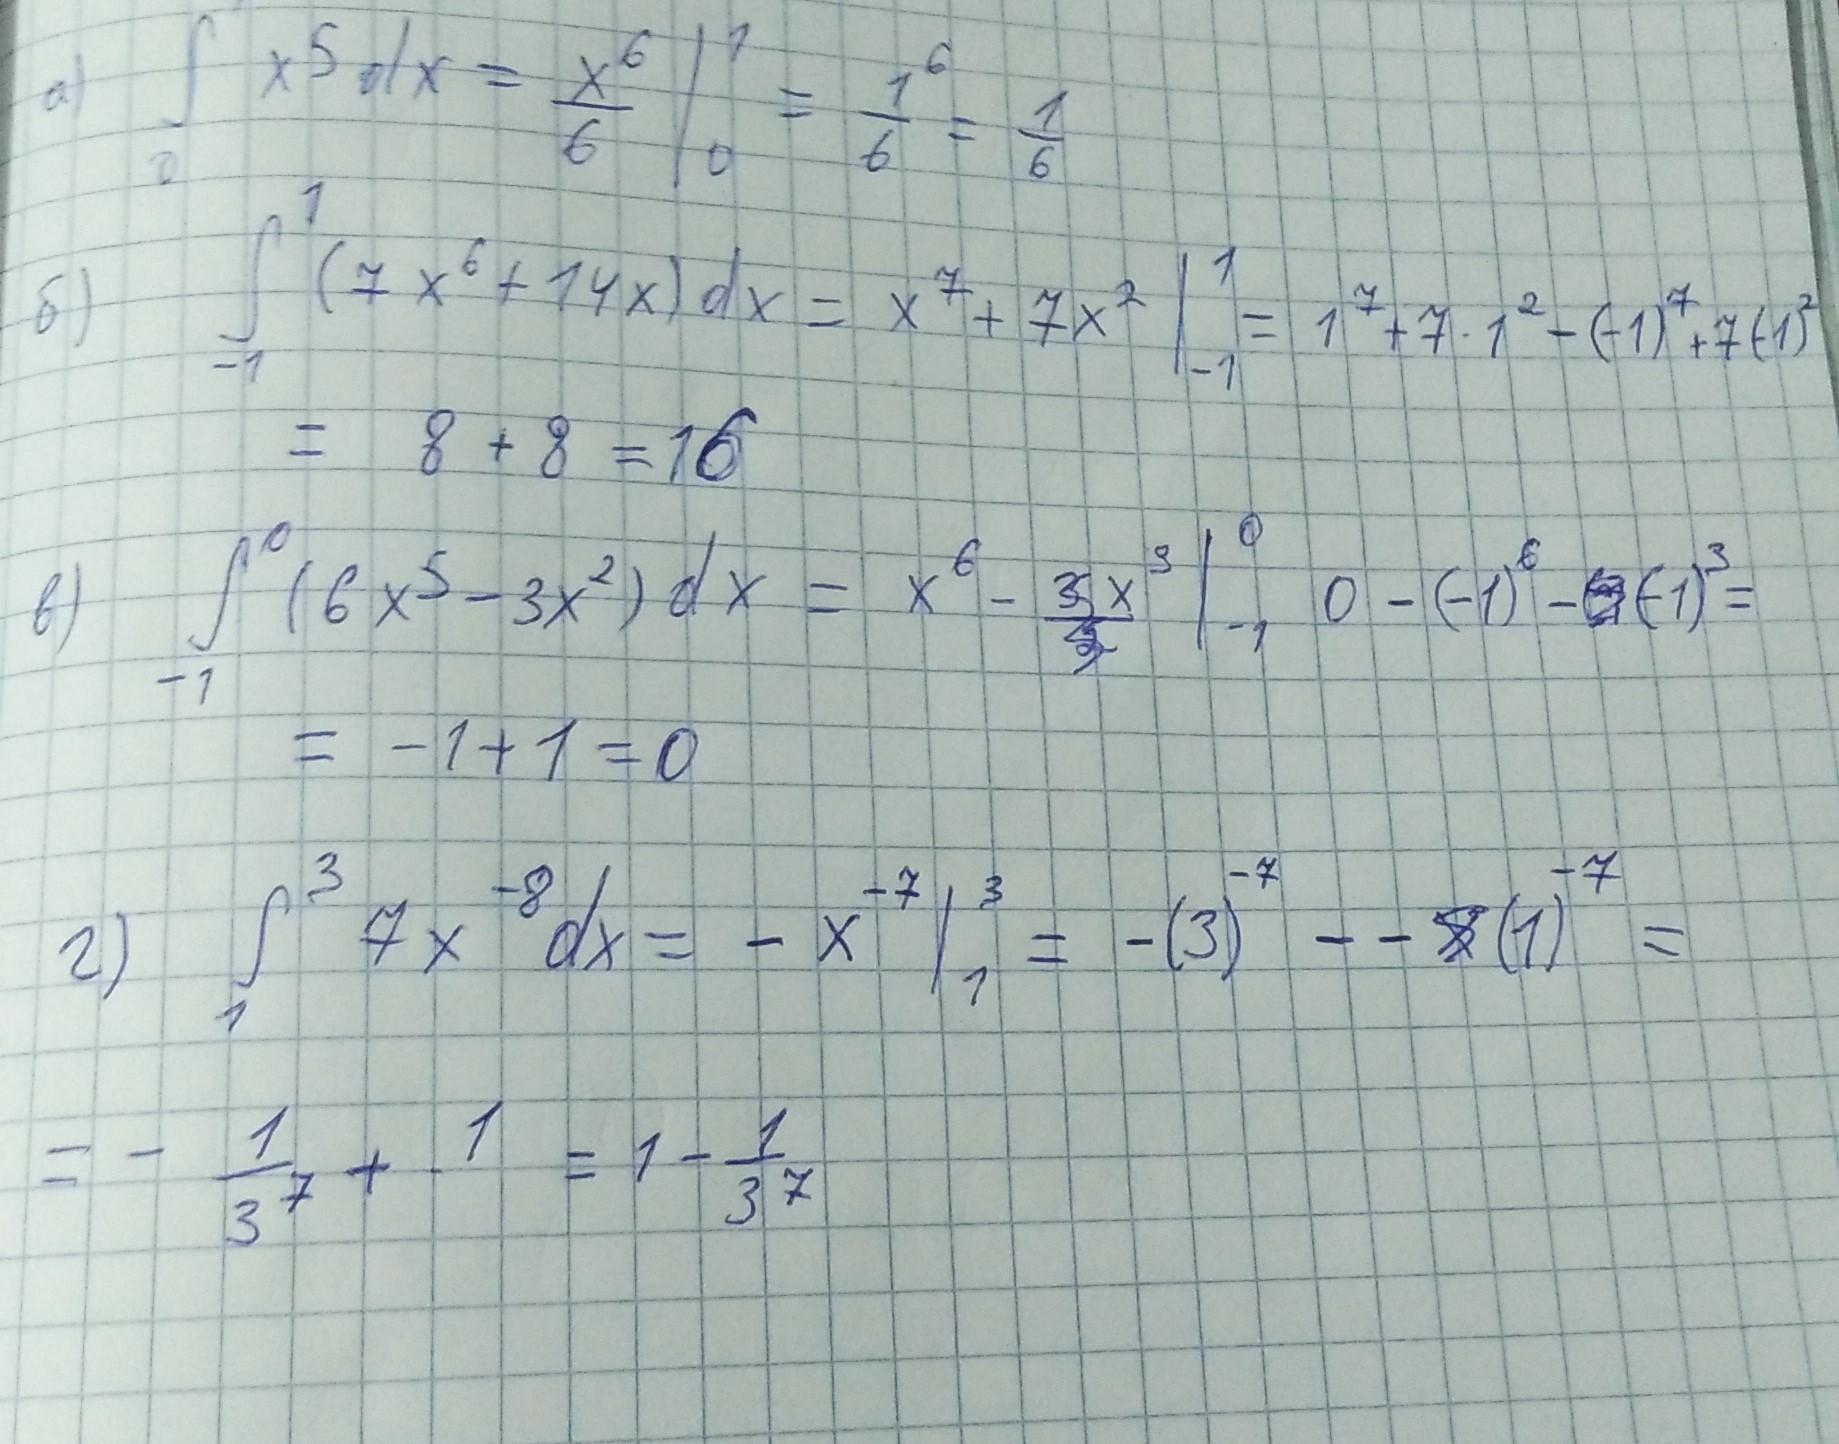 а) ∫₀ x⁵ dx = x⁶/6 |₀¹ = 1⁶/6 = 1/6
б) ∫₋₁¹ (7x⁶ + 14x) dx = x⁷ + 7x² |₋₁¹ = 1⁷ + 7·1² - (-1)⁷ + 7(-1)²
= 8 + 8 = 16
в) ∫₋₁⁰ (6x⁵ - 3x²) dx = x⁶ - 3x³/3 |₋₁⁰ 0 - (-1)⁶ - (-1)³ =
= -1 + 1 = 0
г) ∫₁³ 7x⁻⁸ dx = - x⁻⁷ |₁³ = -(3)⁻⁷ - - (1)⁻⁷ =
= - 1/3⁷ + 1 = 1 - 1/3⁷